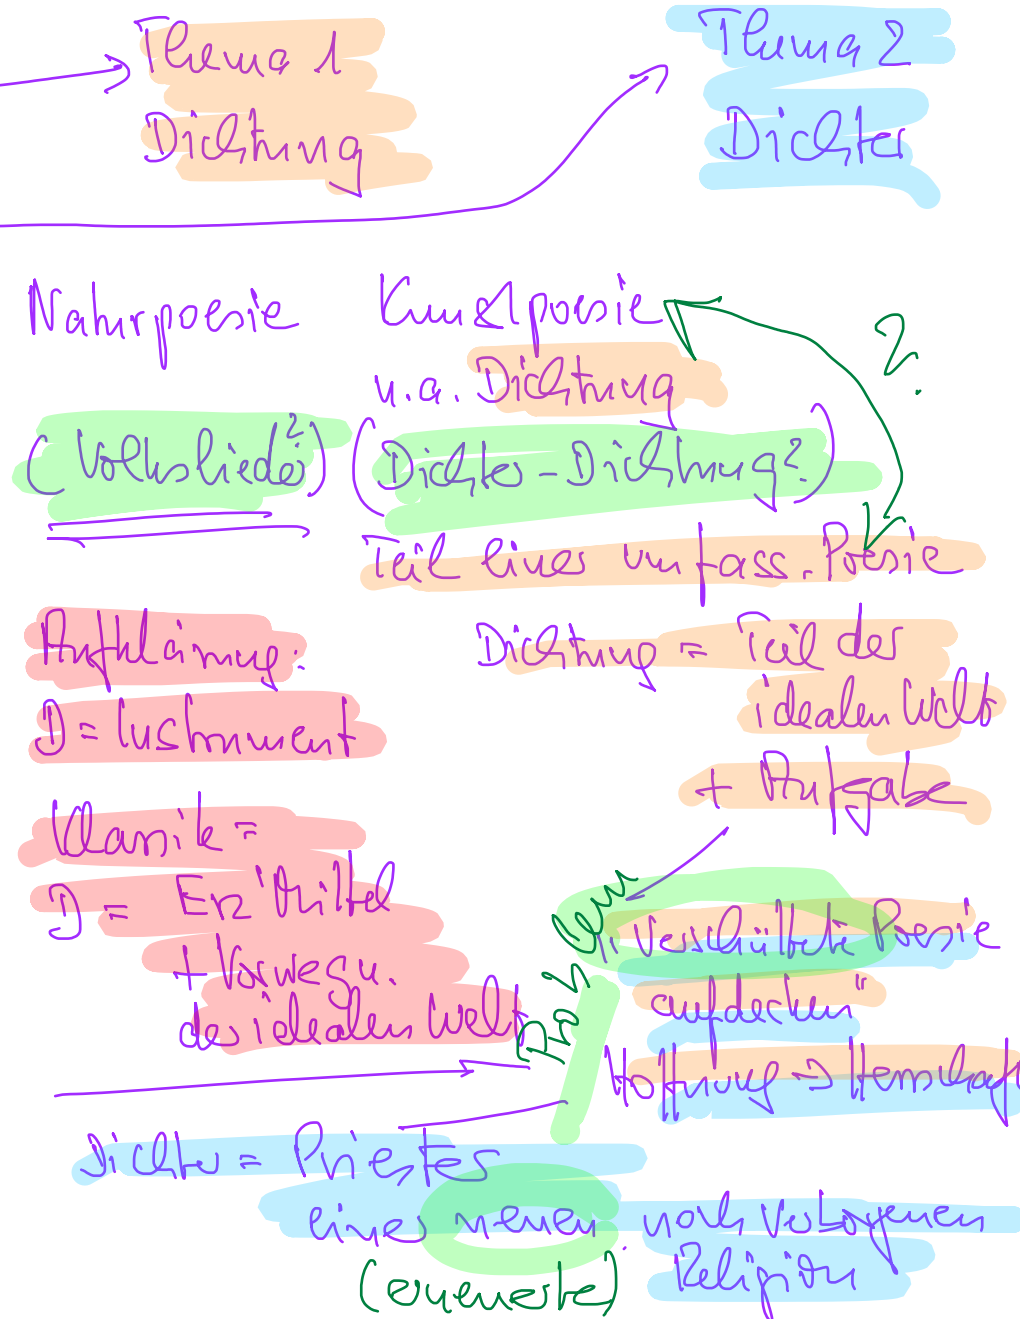 Thema 1
Dichtung
Thema 2
Dichter
Naturpoesie
Kunstpoesie
u.a. Dichtung
?
(Volkslieder?)
(Dichter-Dichtung?)
Teil einer umfass. Poesie
Aufklärung:
D = Instrument
Dichtung = Teil der
idealen Welt
+ Aufgabe
Klassik =
D = Erz'mittel
+ Vorwegn.
der idealen Welt
"Verschüttete Poesie
aufdecken"
Hoffnung → Herrschaft
Dichter = Priester
einer neuen, noch verborgenen
Religion
(erneuerte)